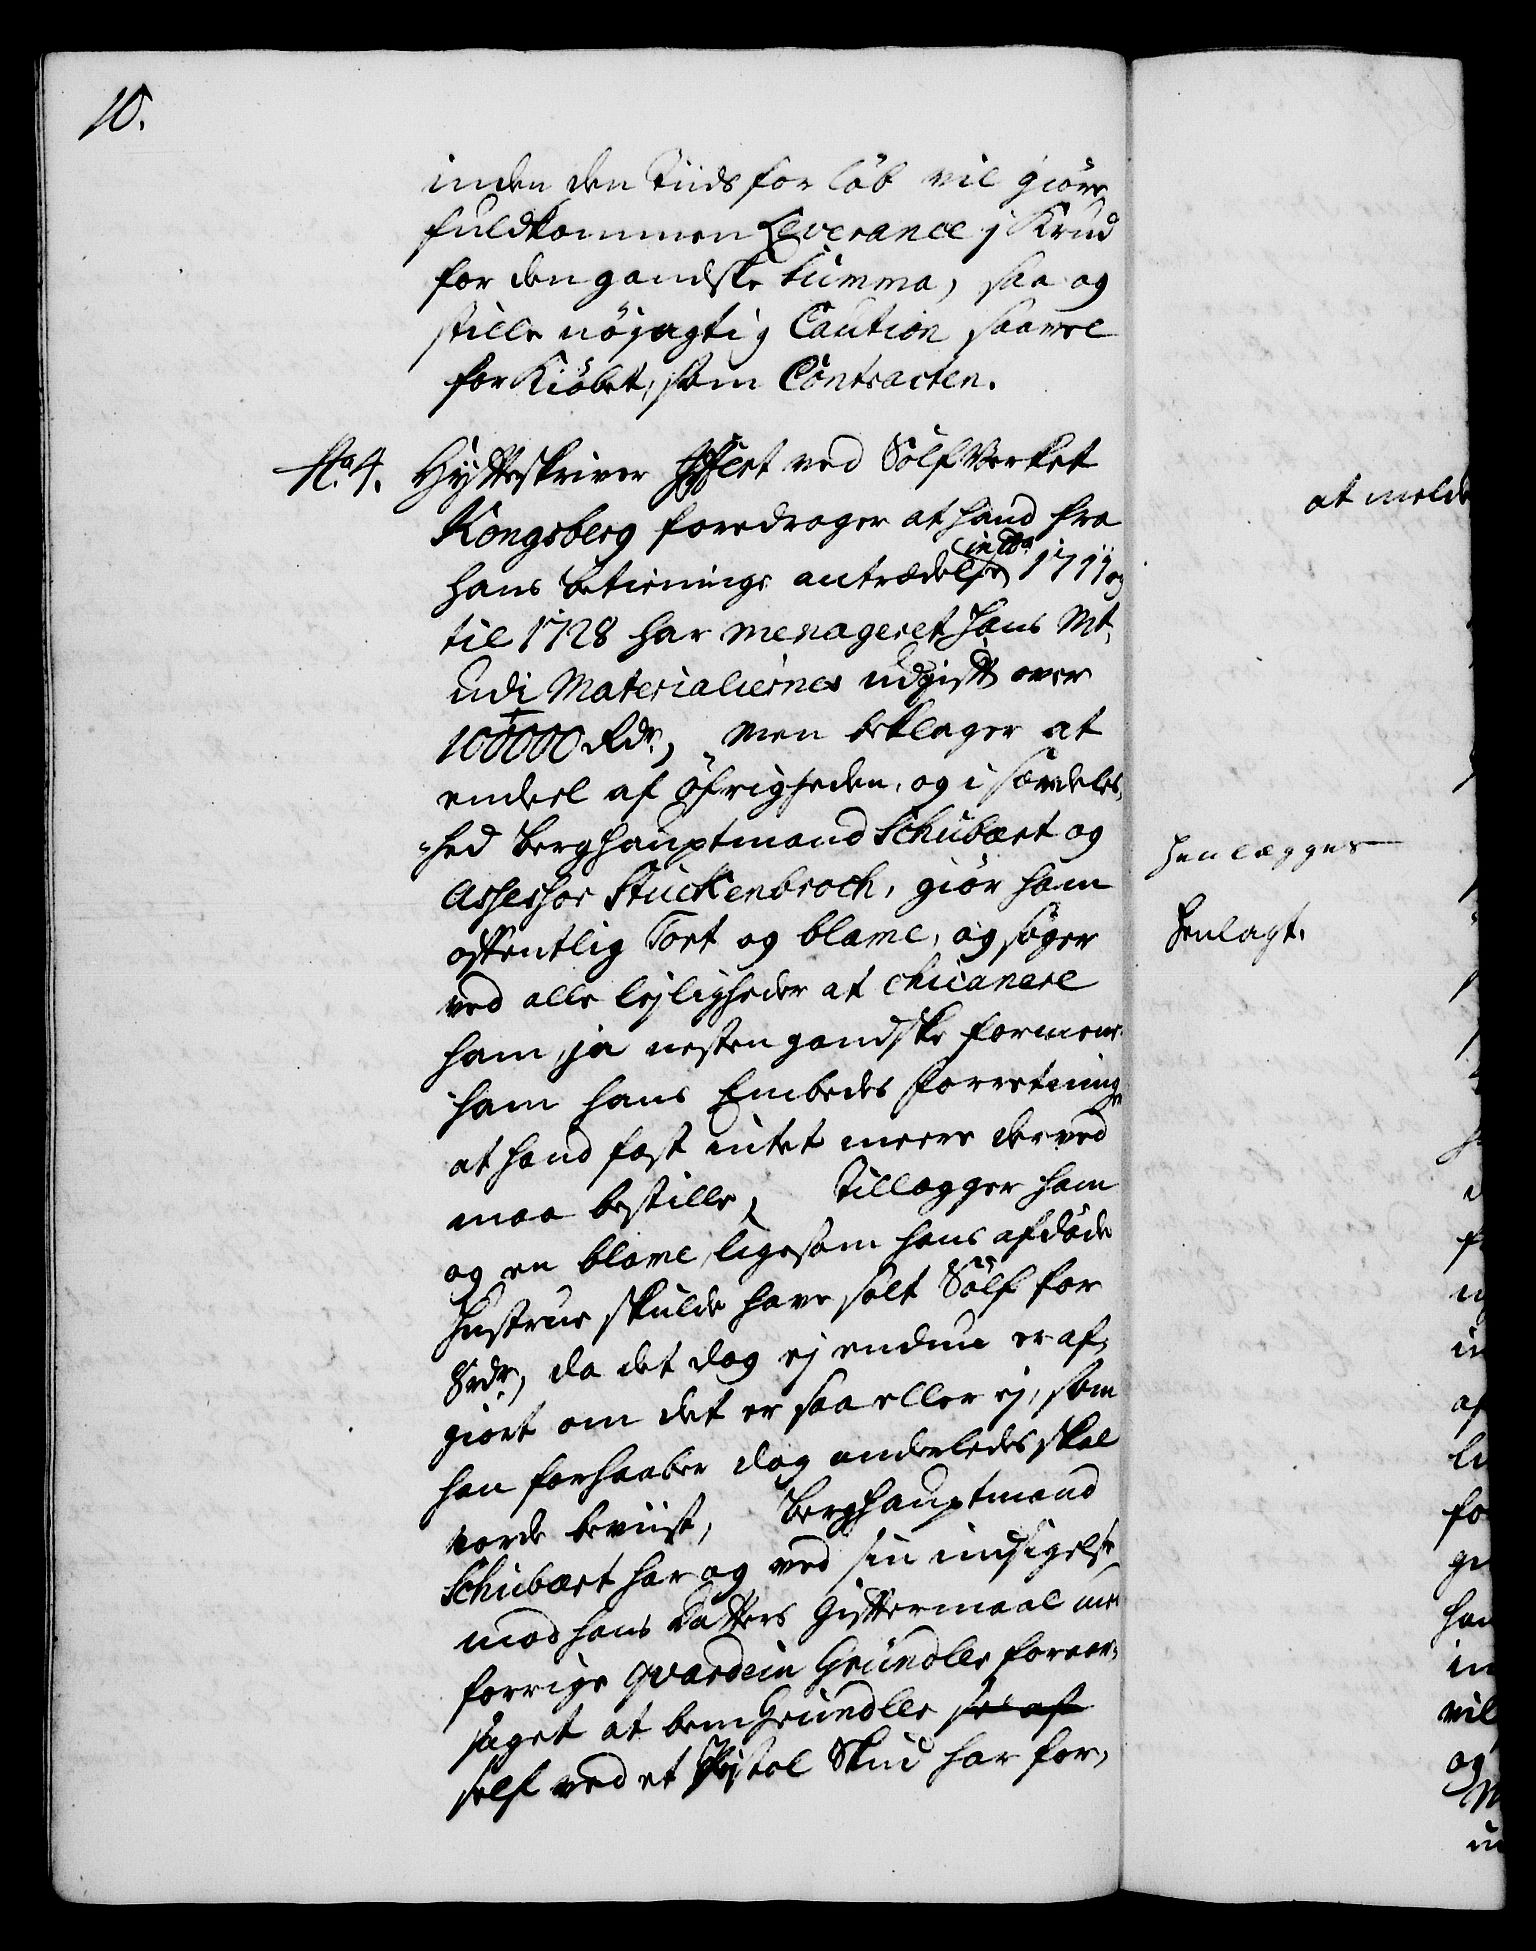 10.
inden den Tiids forløb vil giøre
fuldkommen Leverance j Krud
for den gandske Summa, saa og
stille nöjagtig Caution saavel
for Kiöbet, som Contracten.
No 4. Hytteskriver ved Sölf Verket
Kongsberg foredrager at hand fra
hans betienings antrædelse 1711 og
til 1728 har menageret Hans Mt.
udi Materialiernes udgift over
100000 Rdr., men beklager at
endeel af öfrigheden, og i særdeles-
-hed Berghauptmand Schubart og
Assessor Stuckenbroch, giör ham
offentlig Tort og blame, og söger
ved alle lejligheder at chicanere
ham, ja nesten gandske formene
ham hans Embedes forretning
at hand fast intet meere derved
maa bestille, Tillegger ham
og en blame, ligesom hans afdöde
Hustrue skulde have solt Sölf for
8 rdr., da det dog ej endnu er af-
giort om det er saa eller ej, som
han forhaaber dog anderledes skal
vorde beviist, Berghauptmand
Schubart har og ved sin indsigelse
mod hans Datters Giftermaal med
forrige Qvardein Gründler foraar-
saget at bem Gründler
self ved et Pistol Skud har for-
at melde
henlægges
Henlagt.